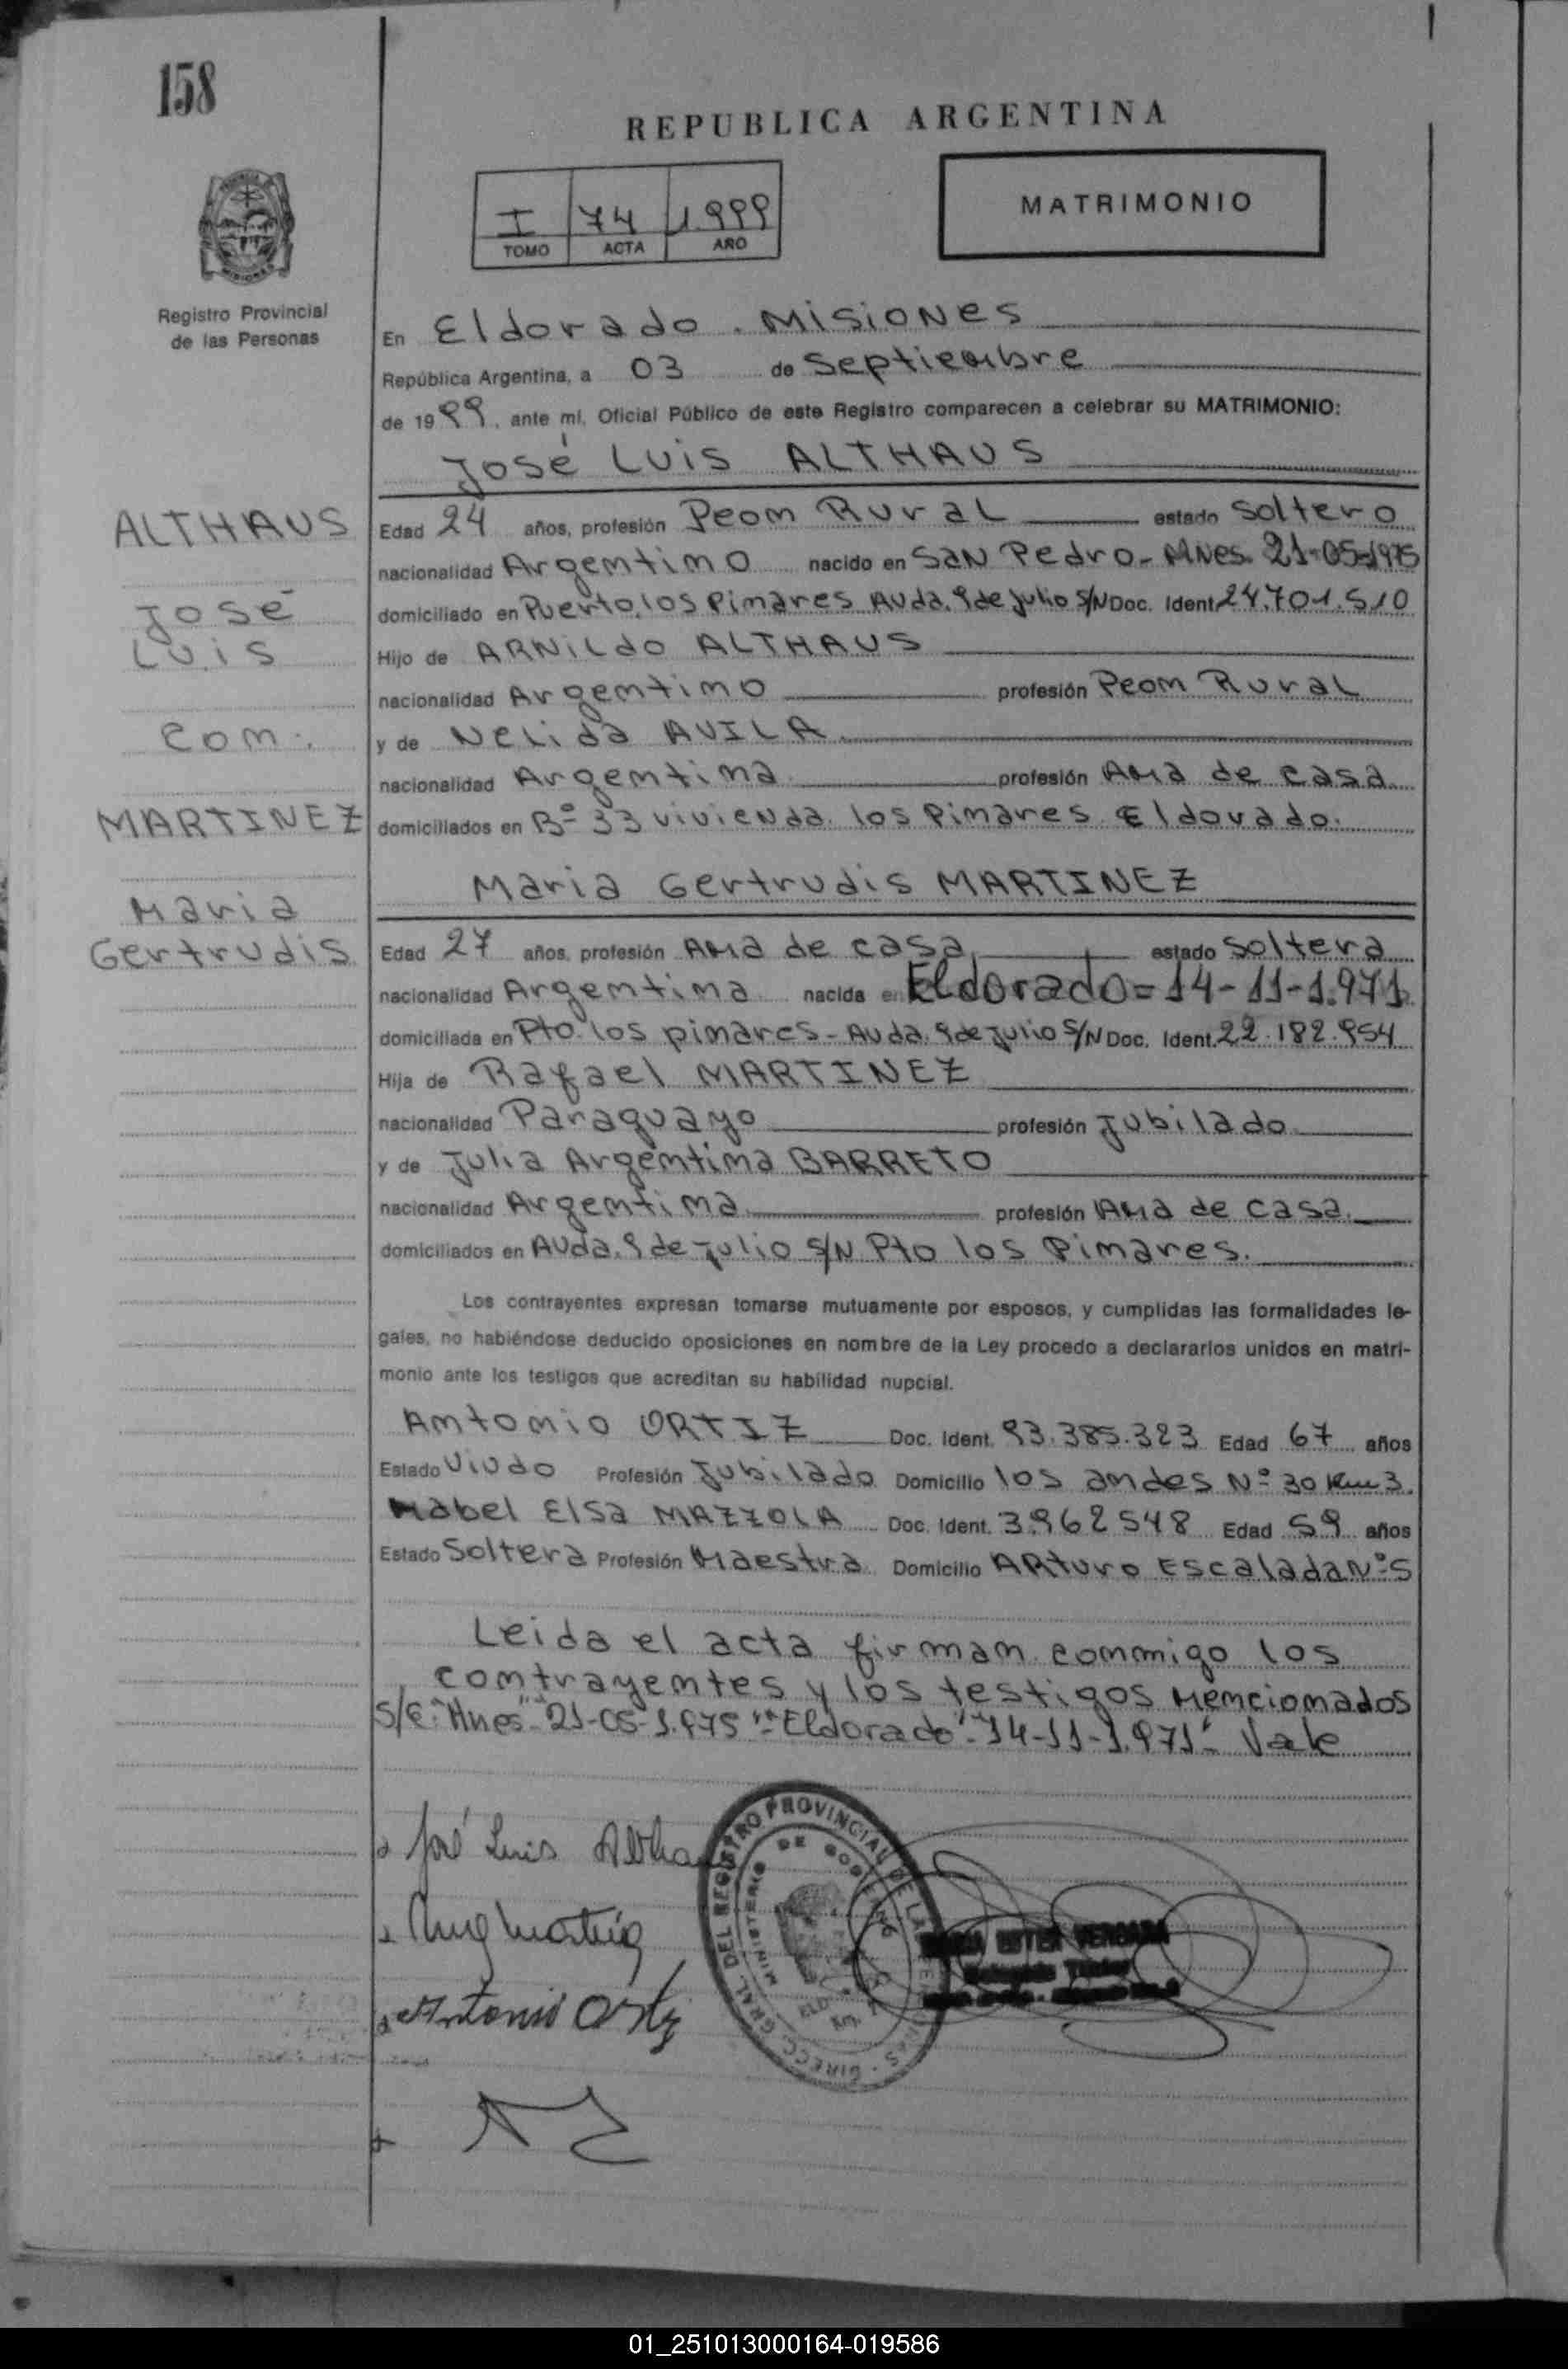 158
REPUBLICA ARGENTINA
I 74 1.999
TOMO ACTA AÑO
MATRIMONIO
Registro Provincial
de las Personas
En Eldorado. Misiones
República Argentina, a 03 de Septiembre
de 1999, ante mí, Oficial Público de este Registro comparecen a celebrar su MATRIMONIO:
José Luis ALTHAUS
ALTHAUS
José
Luis
Com.
MARTINEZ
Maria
Gertrudis
Edad 24 años, profesión Peom Rural estado Soltero
nacionalidad Argemtimo nacido en San Pedro-Mnes. 21-05-1975
domiciliado en Puerto los Pimares Avda. 9 de Julio S/N Doc. Ident. 24.701.510
Hijo de ARNildo ALTHAUS
nacionalidad Argemtimo profesión Peom Rural
y de Nelida AVILA
nacionalidad Argemtima profesión Ama de casa
domiciliados en Bº 33 vivienda los Pimares Eldorado.
Maria Gertrudis MARTINEZ
Edad 27 años, profesión Ama de casa estado Soltera
nacionalidad Argemtima nacida en Eldorado=14-11-1.971
domiciliada en Pto. los pimares-Avda. 9 de Julio S/N Doc. Ident. 22.182.954
Hija de Rafael MARTINEZ
nacionalidad Paraguayo profesión Jubilado
y de Julia Argemtima BARRETO
nacionalidad Argemtima profesión Ama de casa.
domiciliados en Avda. 9 de Julio S/N Pto los Pimares.
Los contrayentes expresan tomarse mutuamente por esposos, y cumplidas las formalidades le-
gales, no habiéndose deducido oposiciones en nombre de la Ley procedo a declararlos unidos en matri-
monio ante los testigos que acreditan su habilidad nupcial.
Amtomio ORTIZ Doc. Ident. 93.385.323 Edad 67 años
Estado Viudo Profesión Jubilado Domicilio los andes Nº 30 Km 3.
Mabel Elsa MAZZOLA Doc. Ident. 3.962548 Edad 59 años
Estado Soltera Profesión Maestra Domicilio ARturo Escalada Nº 5
Leida el acta firman commigo los
comtrayemtes y los testigos Memciomados
S/E: "Mnes" 21-05-1.975 "Eldorado"-14-11-1.971- Vale
José Luis Altha
Antonio Ortiz
DIRECC. GRAL. DEL REGISTRO PROVINCIAL DE LAS PERSONAS
MINISTERIO DE GOBIERNO
ESTER VERGARA
01_251013000164-019586